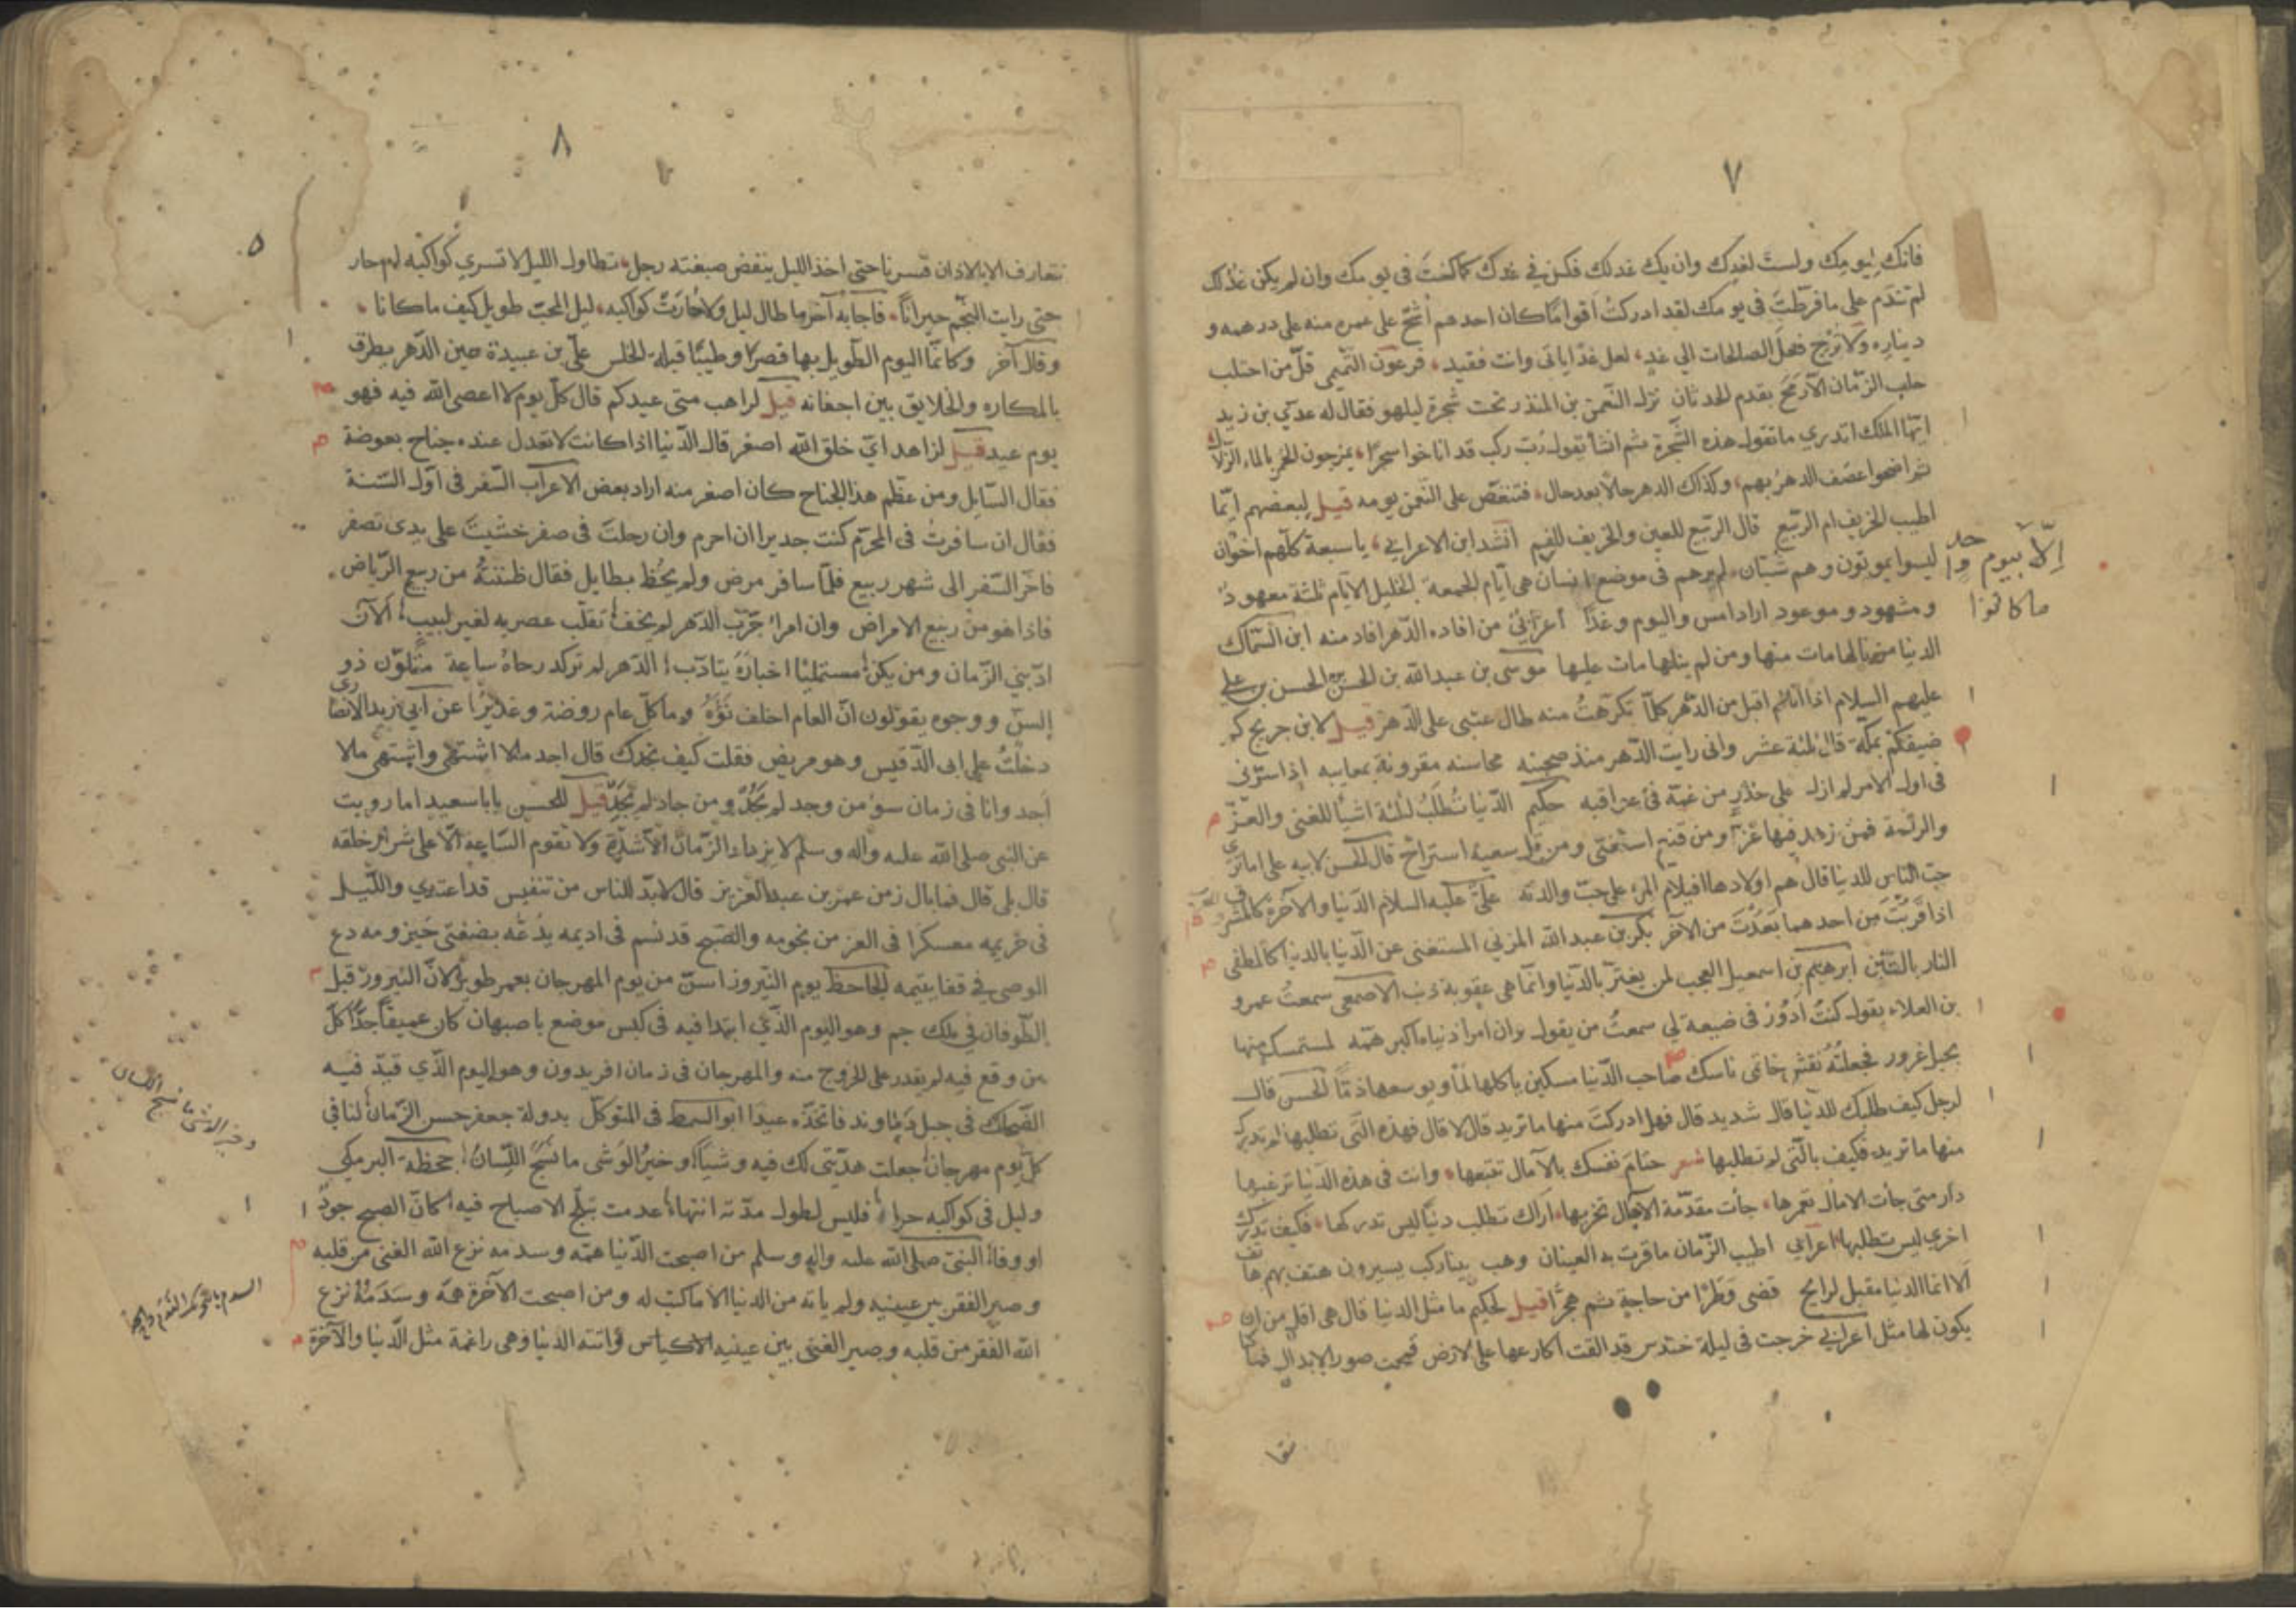 ٧
فانك ليومك ولست لغدك وان يك غد لك فكن في غدك كما كنت فى يومك وان لم يكن غد لك
لم تندم على ما فرّطت فى يومك لقد ادركت اقواما كان احدهم اشحّ على عمره منه على درهمه و
ديناره ولا تُرج فعل الصالحات الي غدٍ لعل غدًا ياتى وانت فقيد فرعون التميمى قلّ من احتلب
حلب الزّمان الا رمح بقدم الحدثان نزل النّعمن بن المنذر تحت شجرة ليلهو فقال له عدي بن زيد
ايّها الملك اتدري ما تقول هذه الشّجرة ثم انشا يقول رُبّ ركب قد اناخوا سحرًا يمزجون الخمر بالماء الزّلال
ثم اضحوا عصف الدهر بهم وكذاك الدهر حالا بعد حال فتنغّص على النّعمن يومه قيل لبعضهم ايّما
اطيب الخريف ام الرّبيع قال الربيع للعين والخريف للفم انشد ابن الاعرابي يا سبعة كلّهم اخوان
ليسوا يموتون وهم شبّان لم يرهم فى موضع انسان هى ايّام الجمعة الخليل الايّام ثلثة معهود
ومشهود وموعود اراد امس واليوم وغدًا أعرابىّ من افاده الدّهر افاد منه ابن السّماك
الدنيا من نالها مات منها ومن لم ينلها مات عليها موسى بن عبد الله بن الحسن بن الحسن بن علي
عليهم السلام اقبل من الدّهر كلّما تكرّهتُ منه طال عتبى على الدّهر قيل لابن جريج كم
ضيفكم بمكّة قال ثلثة عشر وانى رايت الدّهر منذ صحبته محاسنه مقرونة بمعايبه اذا سرّنى
فى اول الامر لم ازل على حذر من غمّه فى عواقبه حكيم الدّنيا تُطلَبُ لثلثة اشياء للغنى والعزّ
والراحة فمن زهد فيها عزّ ومن قنع استغنى ومن قلّ سعيه استراح قال الحسن لابيه على اما ترى
حبّ الناس للدنيا قال هم اولادها افيلام المرء على حبّ والدته علىّ عليه السلام الدّنيا والآخرة كالمشرق
اذا قربت من احدهما بَعُدْتَ من الآخر بكر بن عبد الله المزني المستغنى عن الدّنيا بالدنيا كالمطفى
النار بالتبن ابرهيم بن اسمعيل العجب لمن يغترّ بالدّنيا وانّما هى عقوبة ذنب الاصمعى سمعتُ عمرو
بن العلاء يقول كنتُ أدُور فى ضيعة لي سمعتُ من يقول وان امرا دنياه اكبر همّه لمستمسك منها
بحبل غرور فجعلتُه نقش خاتمى ناسك صاحب الدّنيا مسكين ياكلها لمّا ويوسعها ذمّا الحسن قال
لرجل كيف طلبك للدّنيا قال شديد قال فهل ادركت منها ما تريد قال لا قال فهذه التى تطلبها لم تدرك
منها ما تريد فكيف بالّتى لم تطلبها شعر حتام نفسك بالآمال تتبعها وانت فى هذه الدّنيا ترغبها
دار متى جأت الامال تعمرها جأت مقدّمة الآجال تخربها اراك تطلب دنيا ليس تدركها فكيف تدرك
اخرى ليس تطلبها اعرابي اطيب الزّمان ما قرت به العينان وهب بينا ركب يسيرون هتف بهم هاتف
ألا انما الدنيا مقبل لرايح قضى وَطَرًا من حاجة ثم هجّرا قيل لحكيم ما مثل الدنيا قال هى اقل من ان
يكون لها مثل اعرابي خرجت فى ليلة حندس قد القت اكارعها على الارض فمحت صور الابدان فما كنا
الّا بيوم واحد
ما كانوا
نتعا
٨
نتعارف الا بالاذان فسرنا حتى اخذ الليل ينفض صبغته رجل تطاول الليل لا تسري كواكبه ام حار
حتى رايت النّجم حيرانًا فاجابه آخر ما طال ليل ولا حارَتْ كواكبه ليل المحبّ طويل كيف ما كانا
وقال آخر وكانّما اليوم الطّويل بها قصرًا وطيبًا قبلة الخلس علىّ بن عبيدة حين الدّهر يطرف
بالمكاره والخلايق بين اجفانه قيل لراهب متى عيدكم قال كلّ يوم لا اعصى الله فيه فهو
يوم عيد قيل لزاهد ايّ خلق الله اصغر قال الدّنيا اذا كانت لا تعدل عنده جناح بعوضة
فقال السّايل ومن عظّم هذا الجناح كان اصغر منه اراد بعض الاعراب السّفر فى اوّل السّنة
فقال ان سافرتُ فى المحرّم كنت جديرا ان احرم وان رحلت فى صفر خشيت على يدى تصفر
فاخّر السّفر الى شهر ربيع فلمّا سافر مرض ولم يحظ بطايل فقال ظننته من ربيع الرّياض
فاذا هو من ربيع الامراض وان امرا جرّب الدّهر لم يخف تقلّب عصريه لغير لبيب الآن
ادّبني الزّمان ومن يكن مستمليًا اخباره يتادّب الدّهر لم تركد رحاهُ ساعة متلوّن ذو
السنٍ ووجوه يقولون انّ العام اخلف نَوْؤُه وما كلّ عام روضة وغديرًا عن ابي زيد الانصاري
دخلتُ على ابى الدّقيس وهو مريض فقلت كيف تجدك قال اجد ما لا اشتهى واشتهى ما لا
اجد وانا فى زمان سوء من وجد لم يَجُدْ ومن جاد لم يَجِدْ قيل للحسن يابا سعيد اما رويت
عن النبى صلى الله عليه واله وسلم لا يزداد الزّمان الّا شدّة ولا تقوم السّاعة الّا على شرار خلقه
قال بلى قال فما بال زمن عمر بن عبد العزيز قال لا بدّ للناس من تنفيس قد اغتدي والليل
فى حريمه معسكرا فى العز من نجومه والصّبح قد نسم فى اديمه يدُعّه بضفتى حيزومه دع
الوصى في قفا يتيمه الجاحظ يوم النّيروز اسنّ من يوم المهرجان بعمر طويل لانّ النيروز قبل
الطّوفان في ملك جم وهو اليوم الذّي ابتدا فيه فى كبس موضع باصبهان كان عميقا جدّا كلّ
من وقع فيه لم يقدر على الخروج منه والمهرجان فى زمان افريدون وهو اليوم الذّي قيد فيه
الضّحاك فى جبل دنباوند فاتخذّه عيدا ابو السمط فى المتوكّل بدولة جعفر حسن الزّمان لنا في
كل يوم مهرجان جعلت هديّتى لك فيه وشيًا وخيرُ الوَشى ما نسج اللّسانُ جحظة البرمكي
وليل فى كواكبه حران فليس لطول مدّته انتهاء عدمت تبلّج الاصباح فيه كانّ الصبح جود
او وفاء النبىّ صلى الله عليه واله وسلم من اصبحت الدّنيا همّه وسدمه نزع الله الغنى من قلبه
وصير الفقر بين عينيه ولم ياته من الدنيا الا ما كتب له ومن اصبحت الآخرة همّه وسَدَمَهُ نزع
الله الفقر من قلبه وصير الغنى بين عينيه الاكياس واتته الدنيا وهى راغمة مثل الدّنيا والآخرة
وخير الوشى ما نسج اللسان